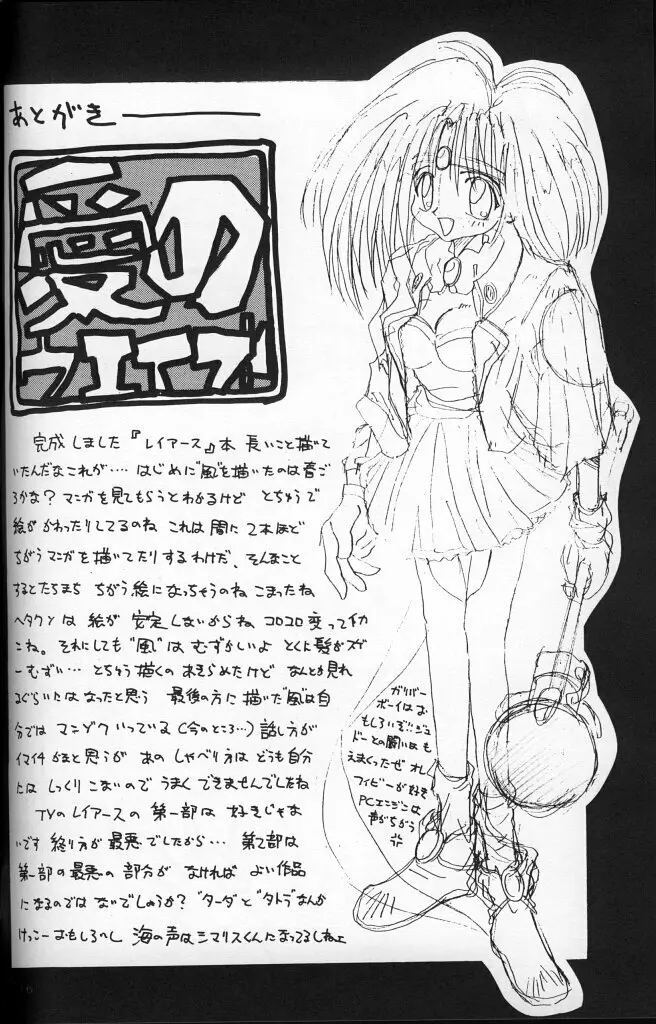 あとがき
愛の
完成しました『レイアース』本 長いこと描いて
いたんだなこれが‥‥ はじめに"風"を描いたのは春ご
ろかな？マンガを見てもらうとわかるけど とちゅうで
絵が かわったりしてるのね これは間に2本ほど
ちがうマンガを描いてたりするわけだ、そんなこと
するとたちまち ちがう絵になっちゃうのね こまったね
ヘタクソは 絵が 安定しないからね コロコロ変って
こね。それにしても"風"は むずかしいよ とくに髪がスゲ
ーむずい… とちゅう描くの あきらめたけど なんとか見れ
るぐらいにはなったと思う 最後の方に描いた"風"は自
分では マンゾク いっている(今のところ…) 話し方が
イマイチかなと思うが あの しゃべり方は どうも自分
には しっくり こないので うまく できませんでしたね
TVのレイアースの 第一部は 好きじゃな
いです 終り方が 最悪でしたから… 第2部は
第一部の最悪の 部分が なければ よい作品
になるのでは ないでしょうか？"ターダ"と"タトラ"なんか
けっこーおもしろいし 海の声はシマリスくんになってるしねェ
ガリバー
ボーイは
おもしろいぞ!!ジュ
ドーとの闘いは も
えまくったぜ オレ
フィビーが好き
PCエンジンは
声がちがう
6